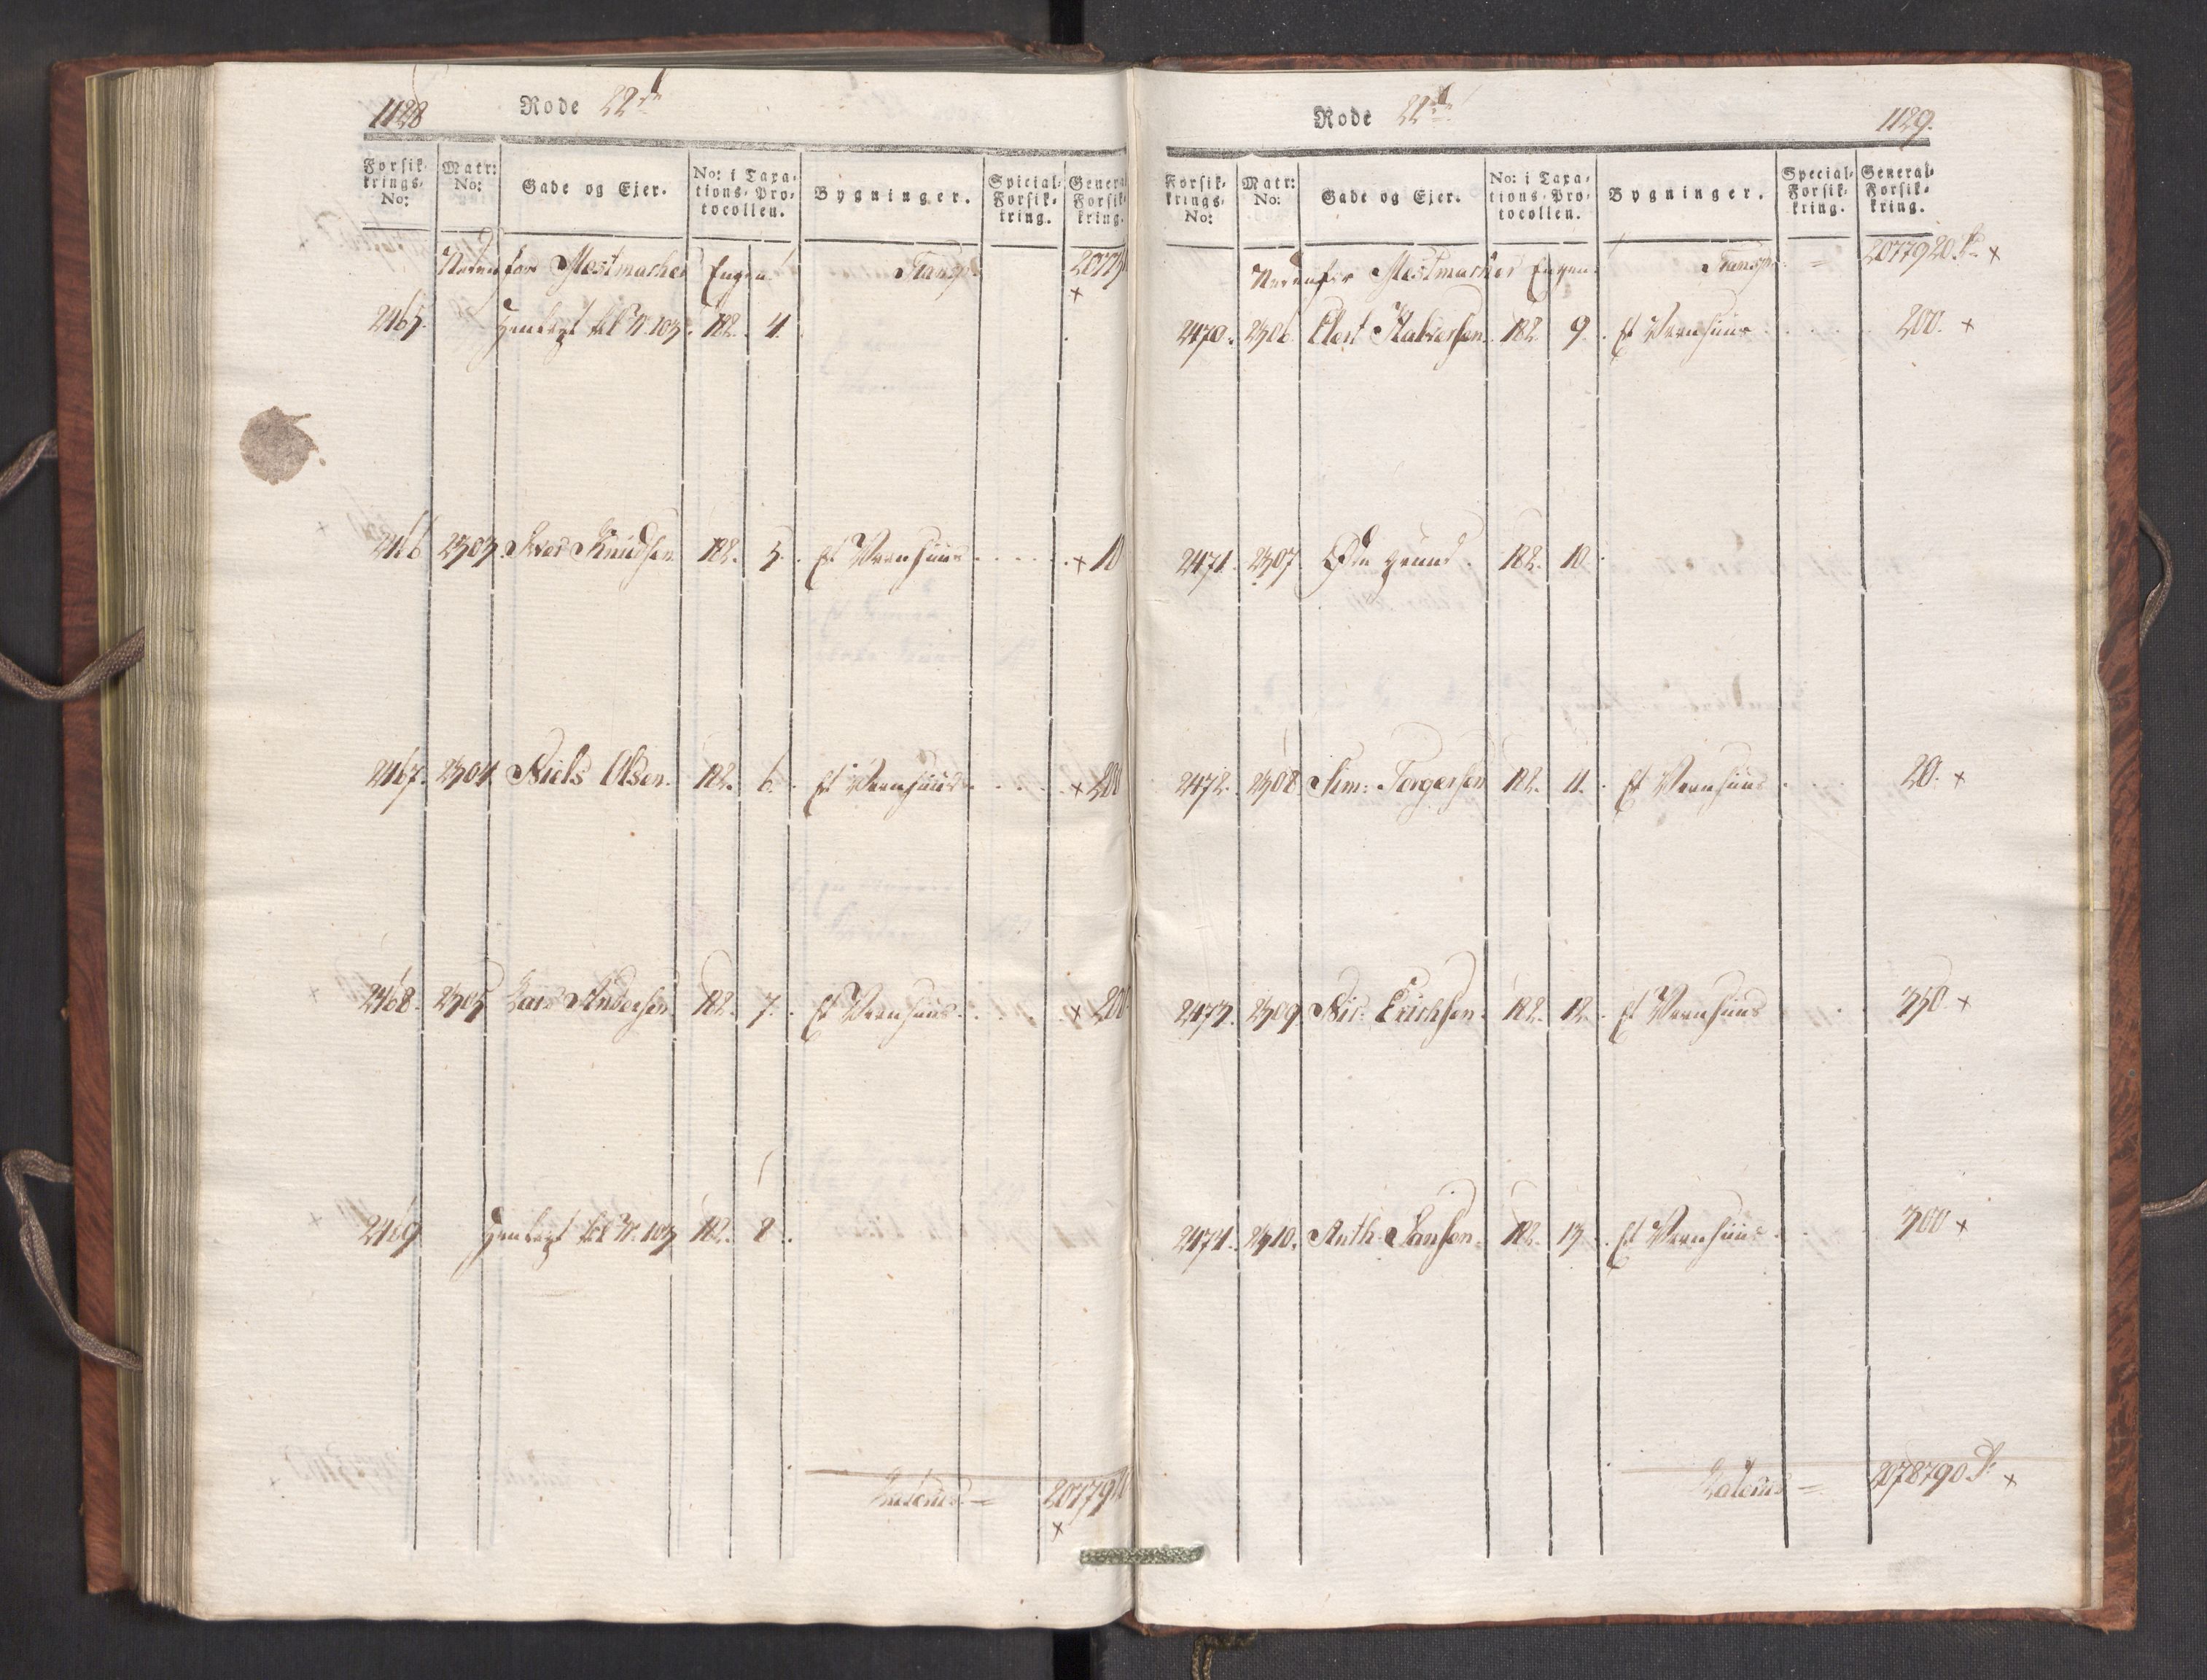 1128
Rode 22de
Forsik-
krings-
No:
Matr:
No:
Gade og Ejer.
No: i Taxa-
tions-Pro-
tocollen.
Bygninger.
Special-
Forsik-
kring.
General-
Forsik-
kring.
Nedenfor Mestmacher Engen Transp:
2465. Henlagt til N. 103. 182. 4.
2466 2303 Iver Knudsen 182. 5. Et Vaanhuus 10
2467. 2304 Niels Olsen. 182. 6. Et Vaanhuus × 200
2468. 2305 Lars Andersen 182. 7. Et Vaanhuus × 200
2469 Henlagt til N. 103 182. 8.
Lateris = 207792
×
Rode 22de
1129.
Forsik-
krings-
No:
Matr:
No:
Gade og Ejer.
No: i Taxa-
tions-Pro-
tocollen.
Bygninger.
Special-
Forsik-
kring.
General-
Forsik-
kring.
Nedenfor Mestmacher Engen. Transp: = 2077920 ×
2470. 2306 Elert Halversen. 182. 9. Et Vaanhuus 200. ×
2471. 2307. Øde grund. 182. 10.
2472. 2308. Sim: Torgersen 182. 11. Et Vaanhuus 20. ×
2473. 2309. Nic: Erichsen. 182. 12. Et Vaanhuus 350 ×
2474. 2310. Anth: Hansen. 182. 13. Et Vaanhuus 300 ×
Lateris = 2078790 ×